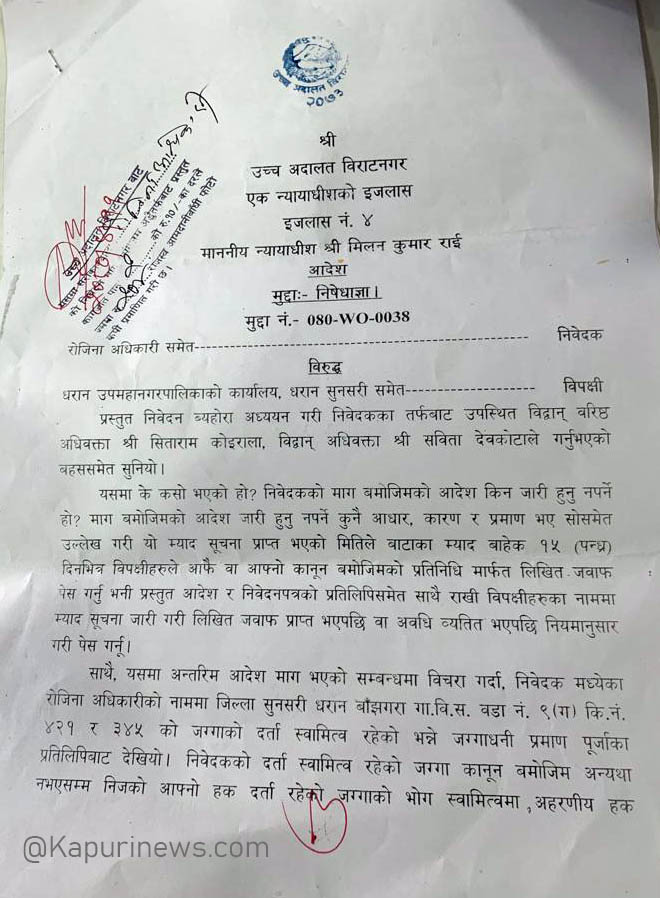 उच्च अदालत विराटनगर
२०७३
श्री
उच्च अदालत विराटनगर
एक न्यायाधीशको इजलास
इजलास नं. ४
माननीय न्यायाधीश श्री मिलन कुमार राई
आदेश
मुद्दाः- निषेधाज्ञा।
मुद्दा नं.- 080-WO-0038
रोजिना अधिकारी समेत------------------------------------------------ निवेदक
विरुद्ध
धरान उपमहानगरपालिकाको कार्यालय, धरान सुनसरी समेत------------------ विपक्षी
प्रस्तुत निवेदन ब्यहोरा अध्ययन गरी निवेदकका तर्फबाट उपस्थित विद्वान् वरिष्ठ
अधिवक्ता श्री सिताराम कोइराला, विद्वान् अधिवक्ता श्री सविता देवकोटाले गर्नुभएको
बहससमेत सुनियो।
यसमा के कसो भएको हो? निवेदकको माग बमोजिमको आदेश किन जारी हुनु नपर्ने
हो? माग बमोजिमको आदेश जारी हुनु नपर्ने कुनै आधार, कारण र प्रमाण भए सोसमेत
उल्लेख गरी यो म्याद सूचना प्राप्त भएको मितिले वाटाका म्याद बाहेक १५ (पन्ध्र)
दिनभित्र विपक्षीहरुले आफै वा आफ्नो कानून बमोजिमको प्रतिनिधि मार्फत लिखित जवाफ
पेस गर्नु भनी प्रस्तुत आदेश र निवेदनपत्रको प्रतिलिपिसमेत साथै राखी विपक्षीहरुका नाममा
म्याद सूचना जारी गरी लिखित जवाफ प्राप्त भएपछि वा अवधि व्यतित भएपछि नियमानुसार
गरी पेस गर्नू।
साथै, यसमा अन्तरिम आदेश माग भएको सम्बन्धमा विचरा गर्दा, निवेदक मध्येका
रोजिना अधिकारीको नाममा जिल्ला सुनसरी धरान बाँझगरा गा.वि.स. वडा नं. ९(ग) कि.नं.
४२१ र ३४५ को जग्गाको दर्ता स्वामित्व रहेको भन्ने जग्गाधनी प्रमाण पूर्जाका
प्रतिलिपिवाट देखियो। निवेदकको दर्ता स्वामित्व रहेको जग्गा कानून बमोजिम अन्यथा
नभएसम्म निजको आफ्नो हक दर्ता रहेको जग्गाको भोग स्वामित्वमा, अहरणीय हक
@Kapurinews.com